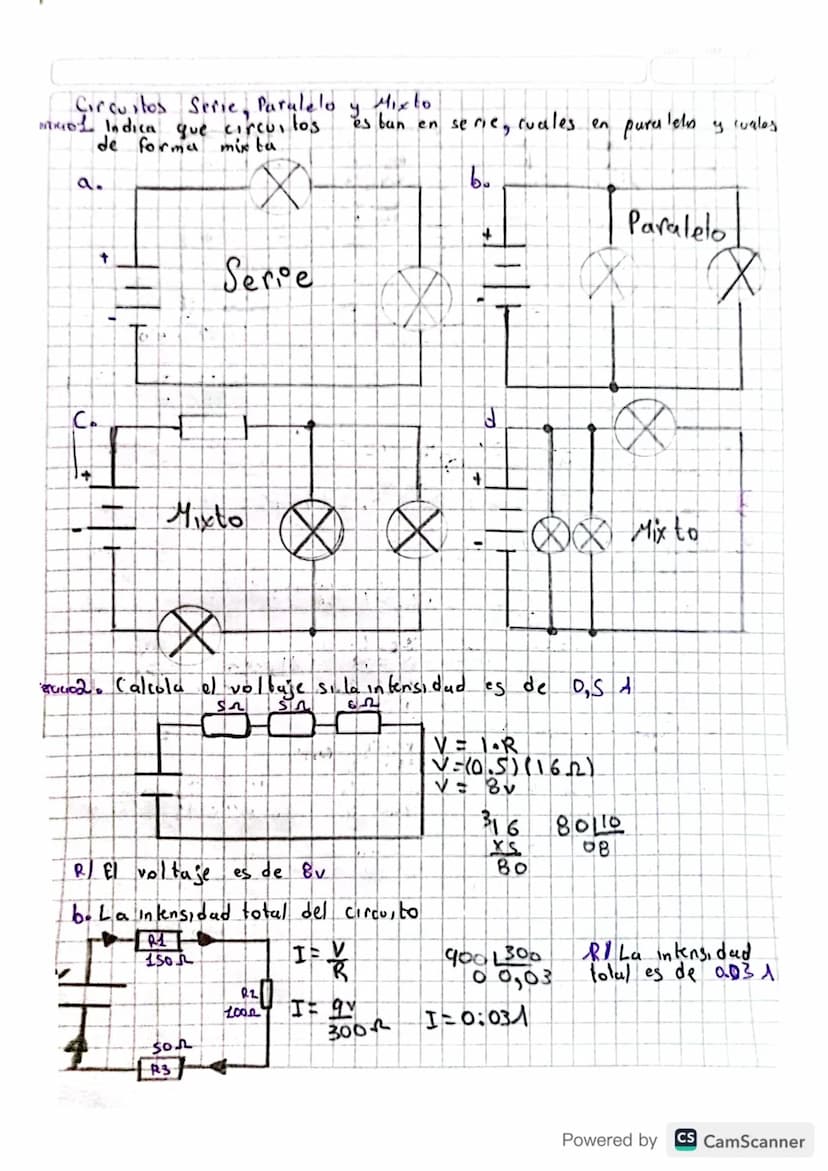 Circuitos Serie, Paralelo y Mixto
1 Indica que circuitos estan en serie, cuales en paralelo y cuales
de forma mixta
a.
b.
+
-
Serie
+
-
Paralelo
c.
d
+
-
Mixto
+
-
Mixto
2. Calcula el voltaje si la intensidad es de 0,5 A
5Ω 5Ω 6Ω
V = I.R
V=(0.5)(16Ω)
V = 8v
³16 80|10
x5 08
80
R/ El voltaje es de 8v
b. La intensidad total del circuito
R1
150Ω
R2
100Ω
50Ω
R3
I = V
R
I = 9v
300Ω
900|300
0 0,03
I=0.03A
R/ La intensidad
total es de 0.03 A
Powered by CS CamScanner